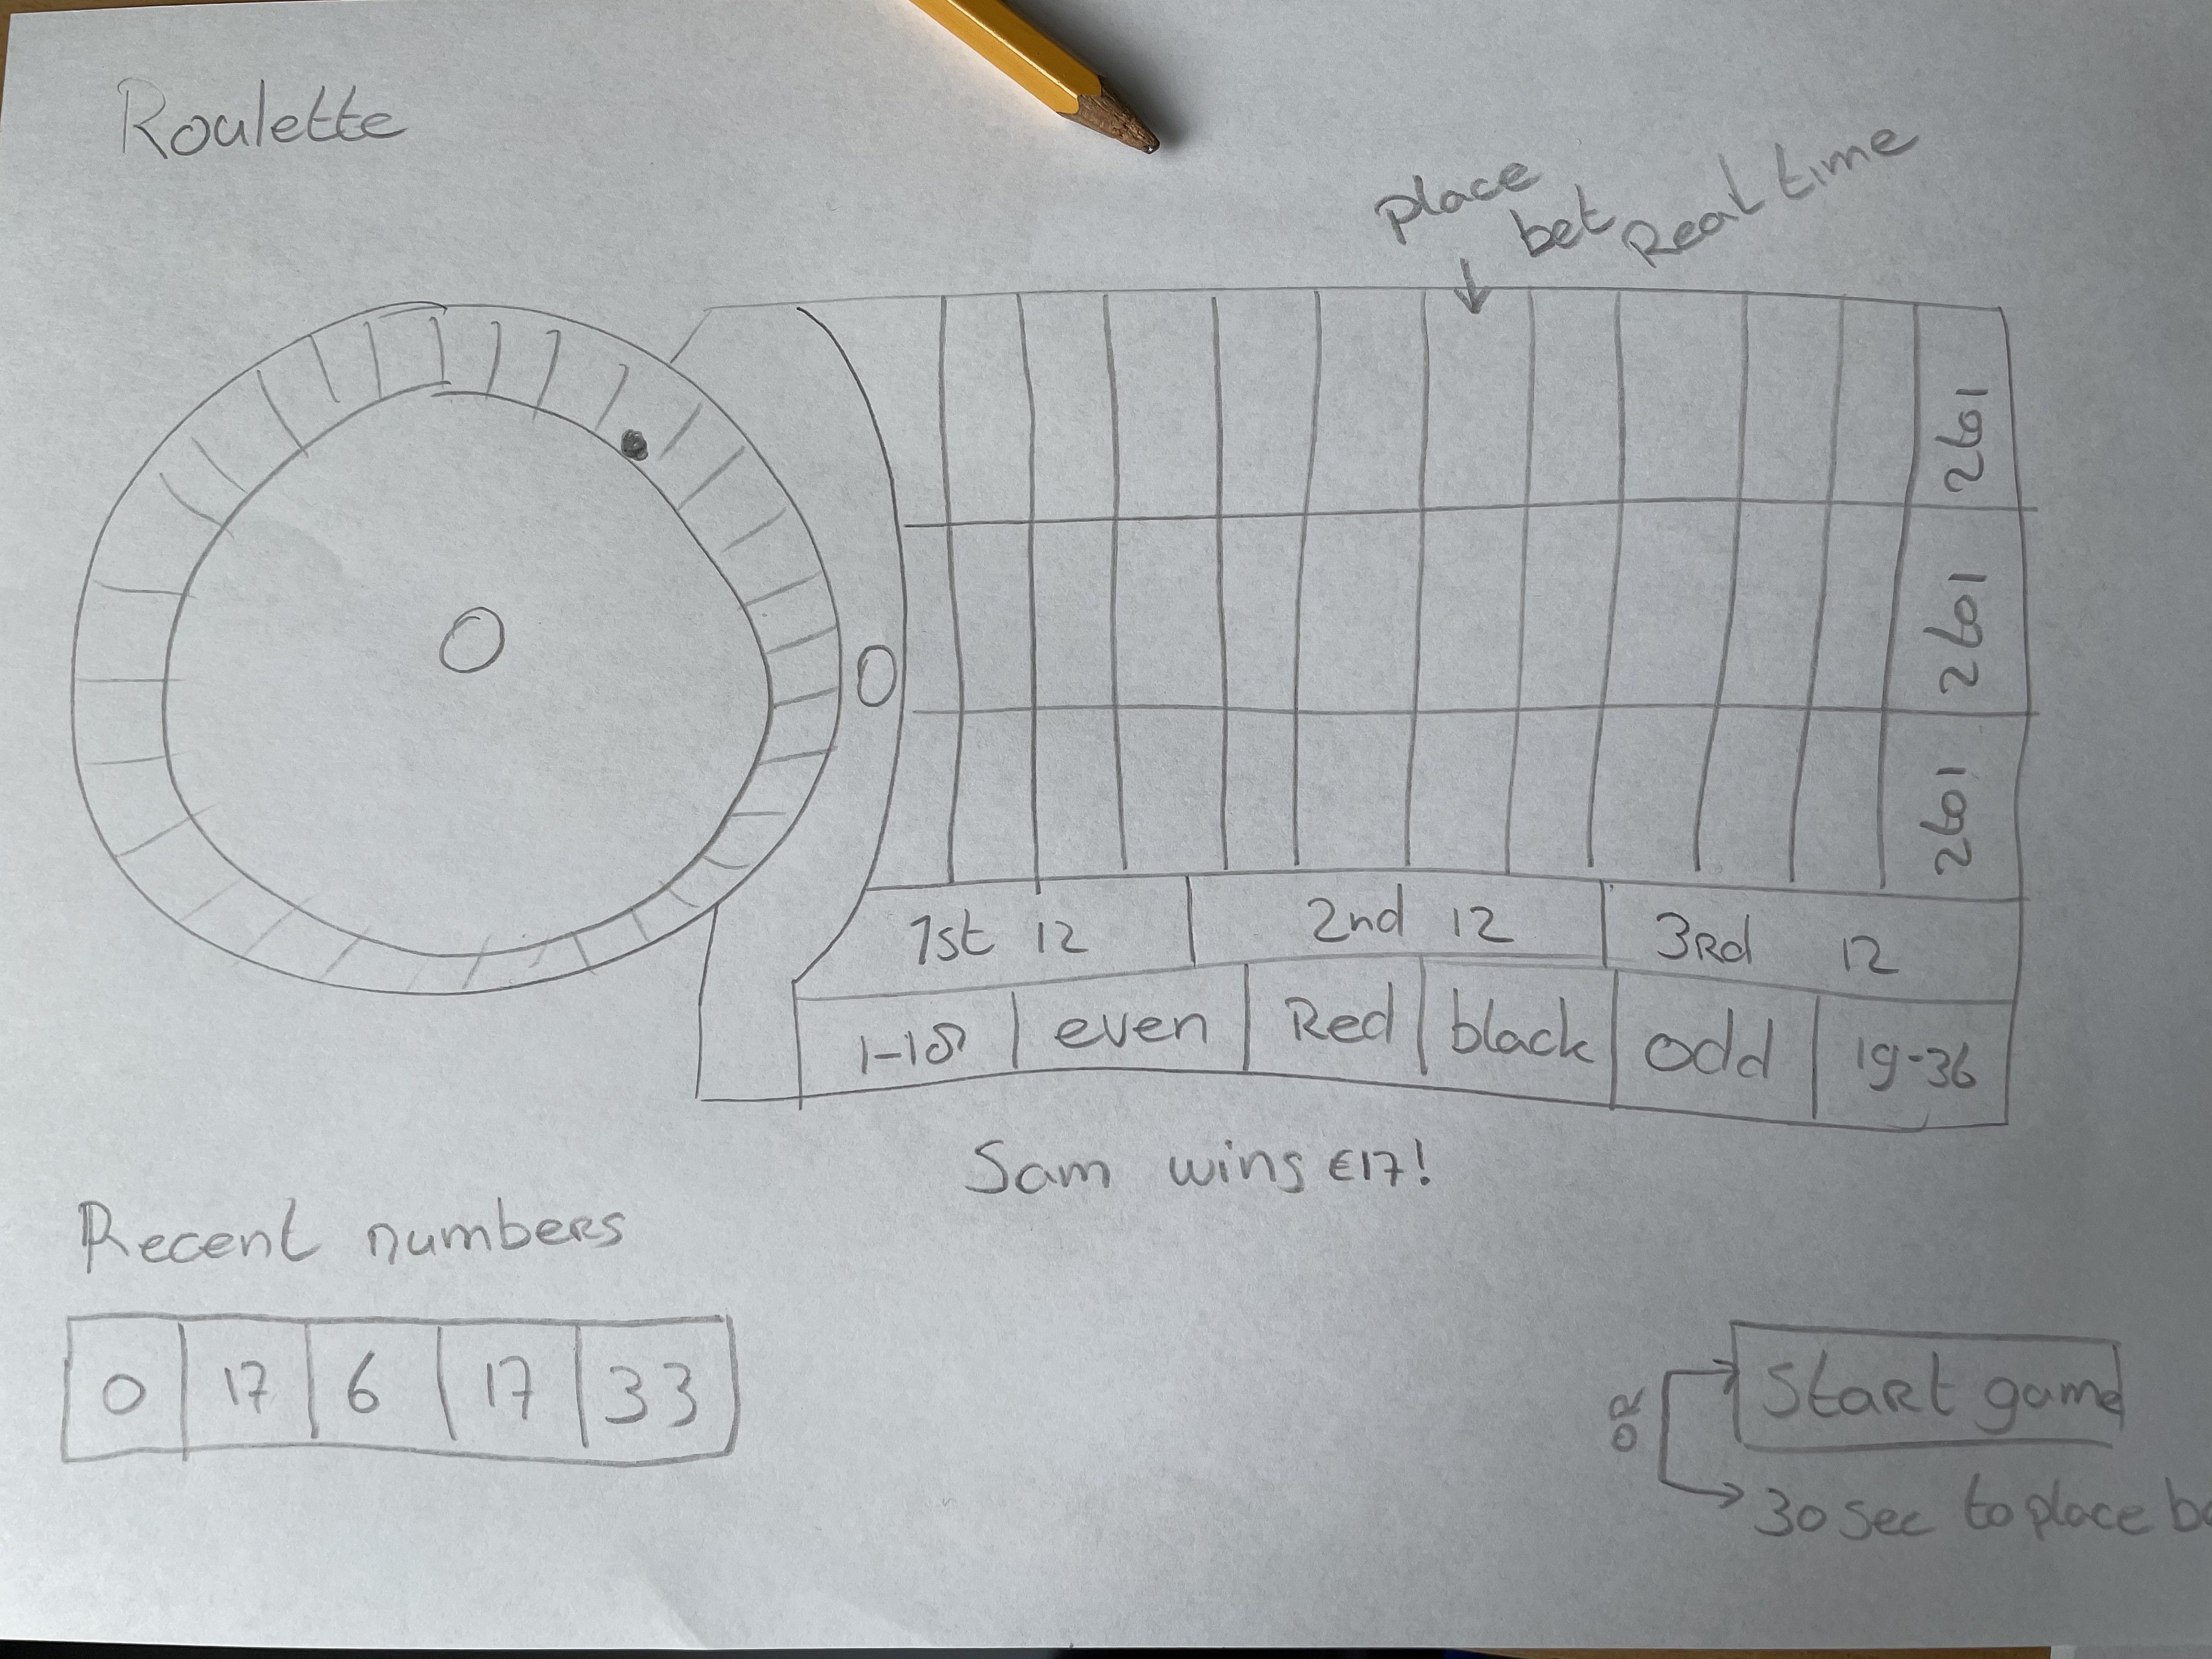 Roulette
place
bet Real time
2to1
2to1
2to1
0
1st 12 2nd 12 3Rd 12
1-18 even Red black odd 19-36
Sam wins €17!
Recent numbers
0 17 6 17 33
OR
Start game
30 sec to place